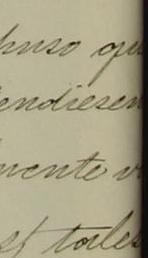 puso qu
endiesen
mente v
es tales